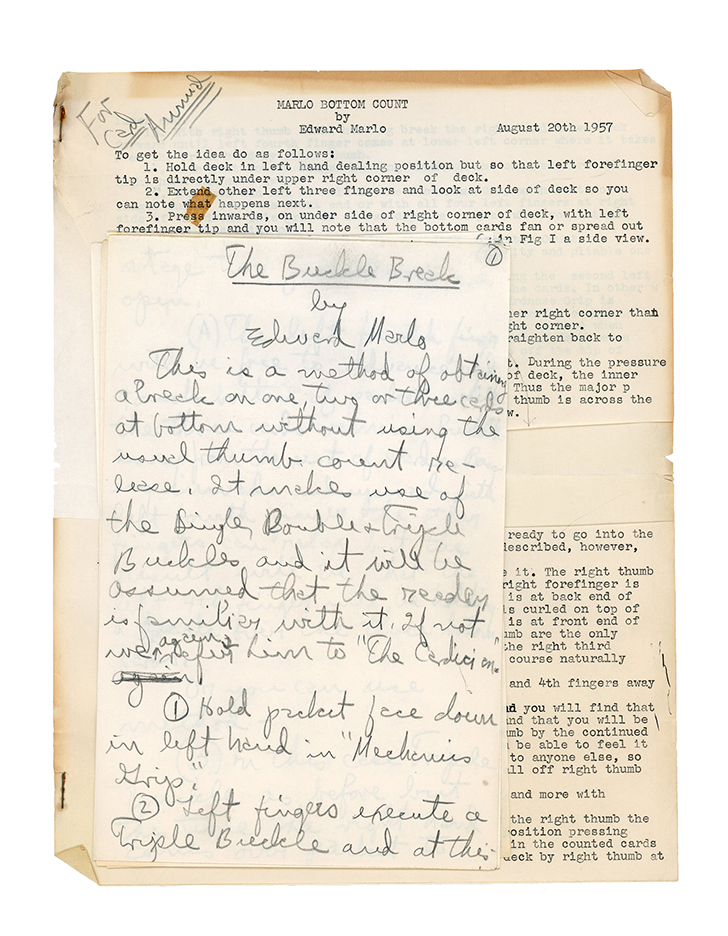 For
Card Annual
MARLO BOTTOM COUNT
by
Edward Marlo August 20th 1957
To get the idea do as follows:
1. Hold deck in left hand dealing position but so that left forefinger
tip is directly under upper right corner of deck.
2. Extend other left three fingers and look at side of deck so you
can note what happens next.
3. Press inwards, on under side of right corner of deck, with left
forefinger tip and you will note that the bottom cards fan or spread out
in Fig I a side view.
ner right corner than
ght corner.
raighten back to
t. During the pressure
of deck, the inner
Thus the major p
thumb is across the
w.
ready to go into the
described, however,
e it. The right thumb
right forefinger is
is at back end of
is curled on top of
is at front end of
umb are the only
the right third
course naturally
and 4th fingers away
nd you will find that
and that you will be
umb by the continued
be able to feel it
to anyone else, so
ll off right thumb
and more with
the right thumb the
osition pressing
in the counted cards
deck by right thumb at
1
The Buckle Break
by
Edward Marlo
This is a method of obtaining
a break on one, two or three cards
at bottom without using the
usual thumb count re-
lease. It makes use of
the Single, Double & Triple
Buckles and it will be
assumed that the reader
is familiar with it. If not
we again refer him to "The Cardician."
again
1 Hold packet face down
in left hand in "Mechanics
Grip."
2 Left fingers execute a
Triple Buckle and at this